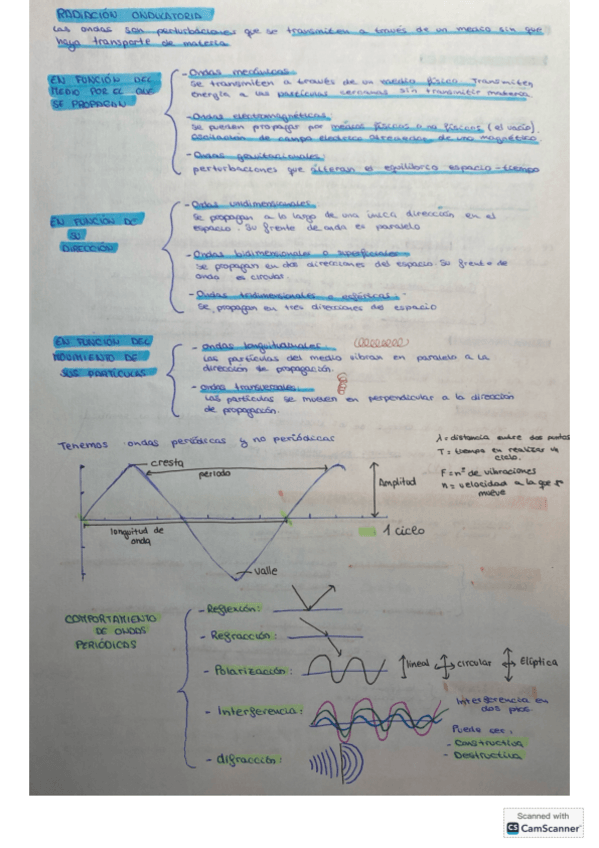 RADIACIÓN ONDULATORIA
Las ondas son perturbaciones que se transmiten a través de un medio sin que
haya transporte de materia
EN FUNCIÓN DEL
MEDIO POR EL QUE
SE PROPAGAN
- Ondas mecánicas:
Se transmiten a través de un medio físico. Transmiten
energía a las partículas cercanas sin transmitir materia
- Ondas electromagnéticas:
Se pueden propagar por medios físicos o no físicos (el vacío).
oscilación de campo eléctrico de uno magnético.
- Ondas gravitacionales:
perturbaciones que alteran el equilibrio espacio-tiempo
EN FUNCIÓN DE
SU
DIRECCIÓN
- Ondas unidimensionales:
Se propagan a lo largo de una única dirección en el
espacio. Su frente de onda es paralelo
- Ondas bidimensionales o superficiales:
Se propagan en dos direcciones del espacio. Su frente de
onda es circular.
- Ondas tridimensionales o esféricas:
Se propagan en tres direcciones de espacio
EN FUNCIÓN DEL
MOVIMIENTO DE
SUS PARTÍCULAS
- Ondas longitudinales:
Las partículas del medio vibran en paralelo a la
dirección de propagación.
- Ondas transversales:
Las partículas se mueven en perpendicular a la dirección
de propagación.
Tenemos ondas periódicas y no periódicas
λ = distancia entre dos puntos
T = tiempo en realizar un
ciclo.
F = nº de vibraciones
n = velocidad a la que se
mueve
cresta
periodo
Amplitud
longitud de
onda
valle
1 ciclo
COMPORTAMIENTO
DE ONDAS
PERIÓDICAS
- Reflexión:
- Refracción:
- Polarización:
lineal
circular
Elíptica
- Interferencia:
Interferencia en
dos
Puede ser:
- Constructiva
- Destructiva
- difracción:
Scanned with
CS CamScanner